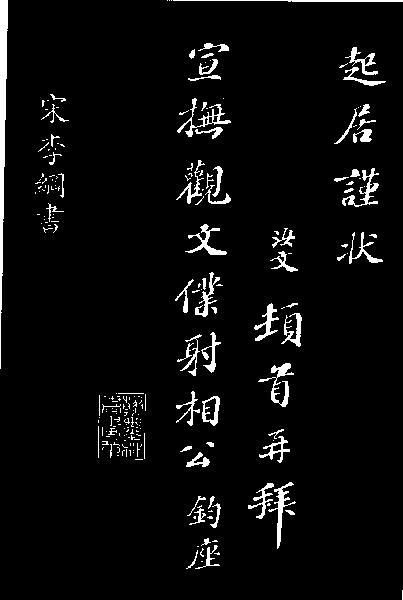 起居謹状
汝文頓首再拜
宣撫觀文僕射相公鈞座
宋李綱書